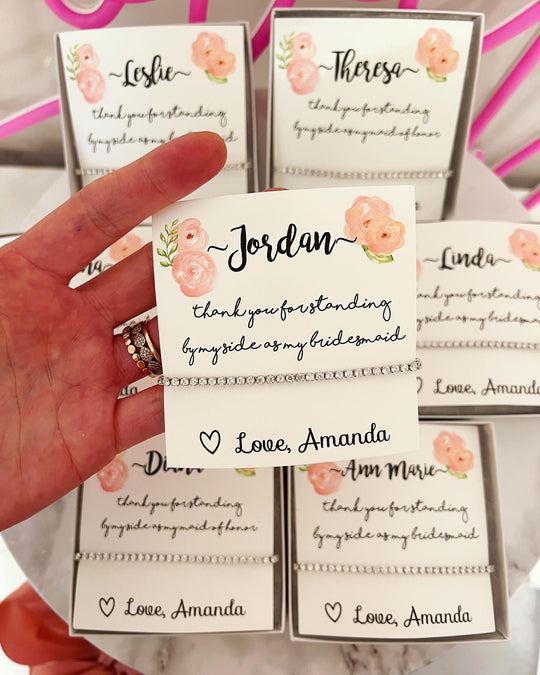 ~Leslie~
thank you for standing
by my side as my
~Theresa~
thank you for standing
by my side as my maid of honor
~Jordan~
thank you for standing
by my side as my bridesmaid
Love, Amanda
na
~Linda~
thank you for standing
my side as my bridesmaid
Love, Amanda
~Diana
thank you for standing
by my side as my maid of honor
Love, Amanda
~Ann Marie~
thank you for standing
by my side as my bridesmaid
Love, Amanda